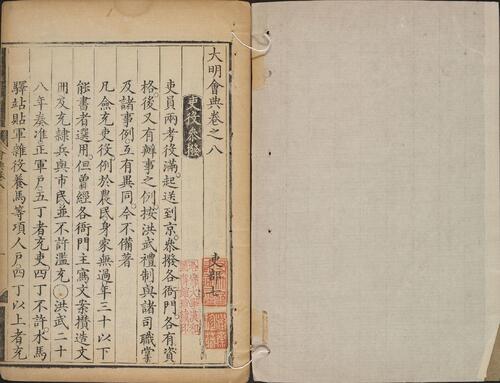 大明會典卷之八
吏部七
吏役叅撥
吏員兩考役滿。起送到京。叅撥各衙門。各有資
格。後又有辦事之例。按洪武禮制與諸司職掌
及諸事例。互有異同。今不備著
凡僉充吏役。例於農民身家無過。年三十以下
能書者選用。但曾經各衙門主寫文案。攢造文
冊。及充隸兵與市民。並不許濫充。○洪武二十
八年奏准。正軍戶。五丁者充吏。四丁不許。水馬
驛站貼軍雜役養馬等項人戶。四丁以上者充